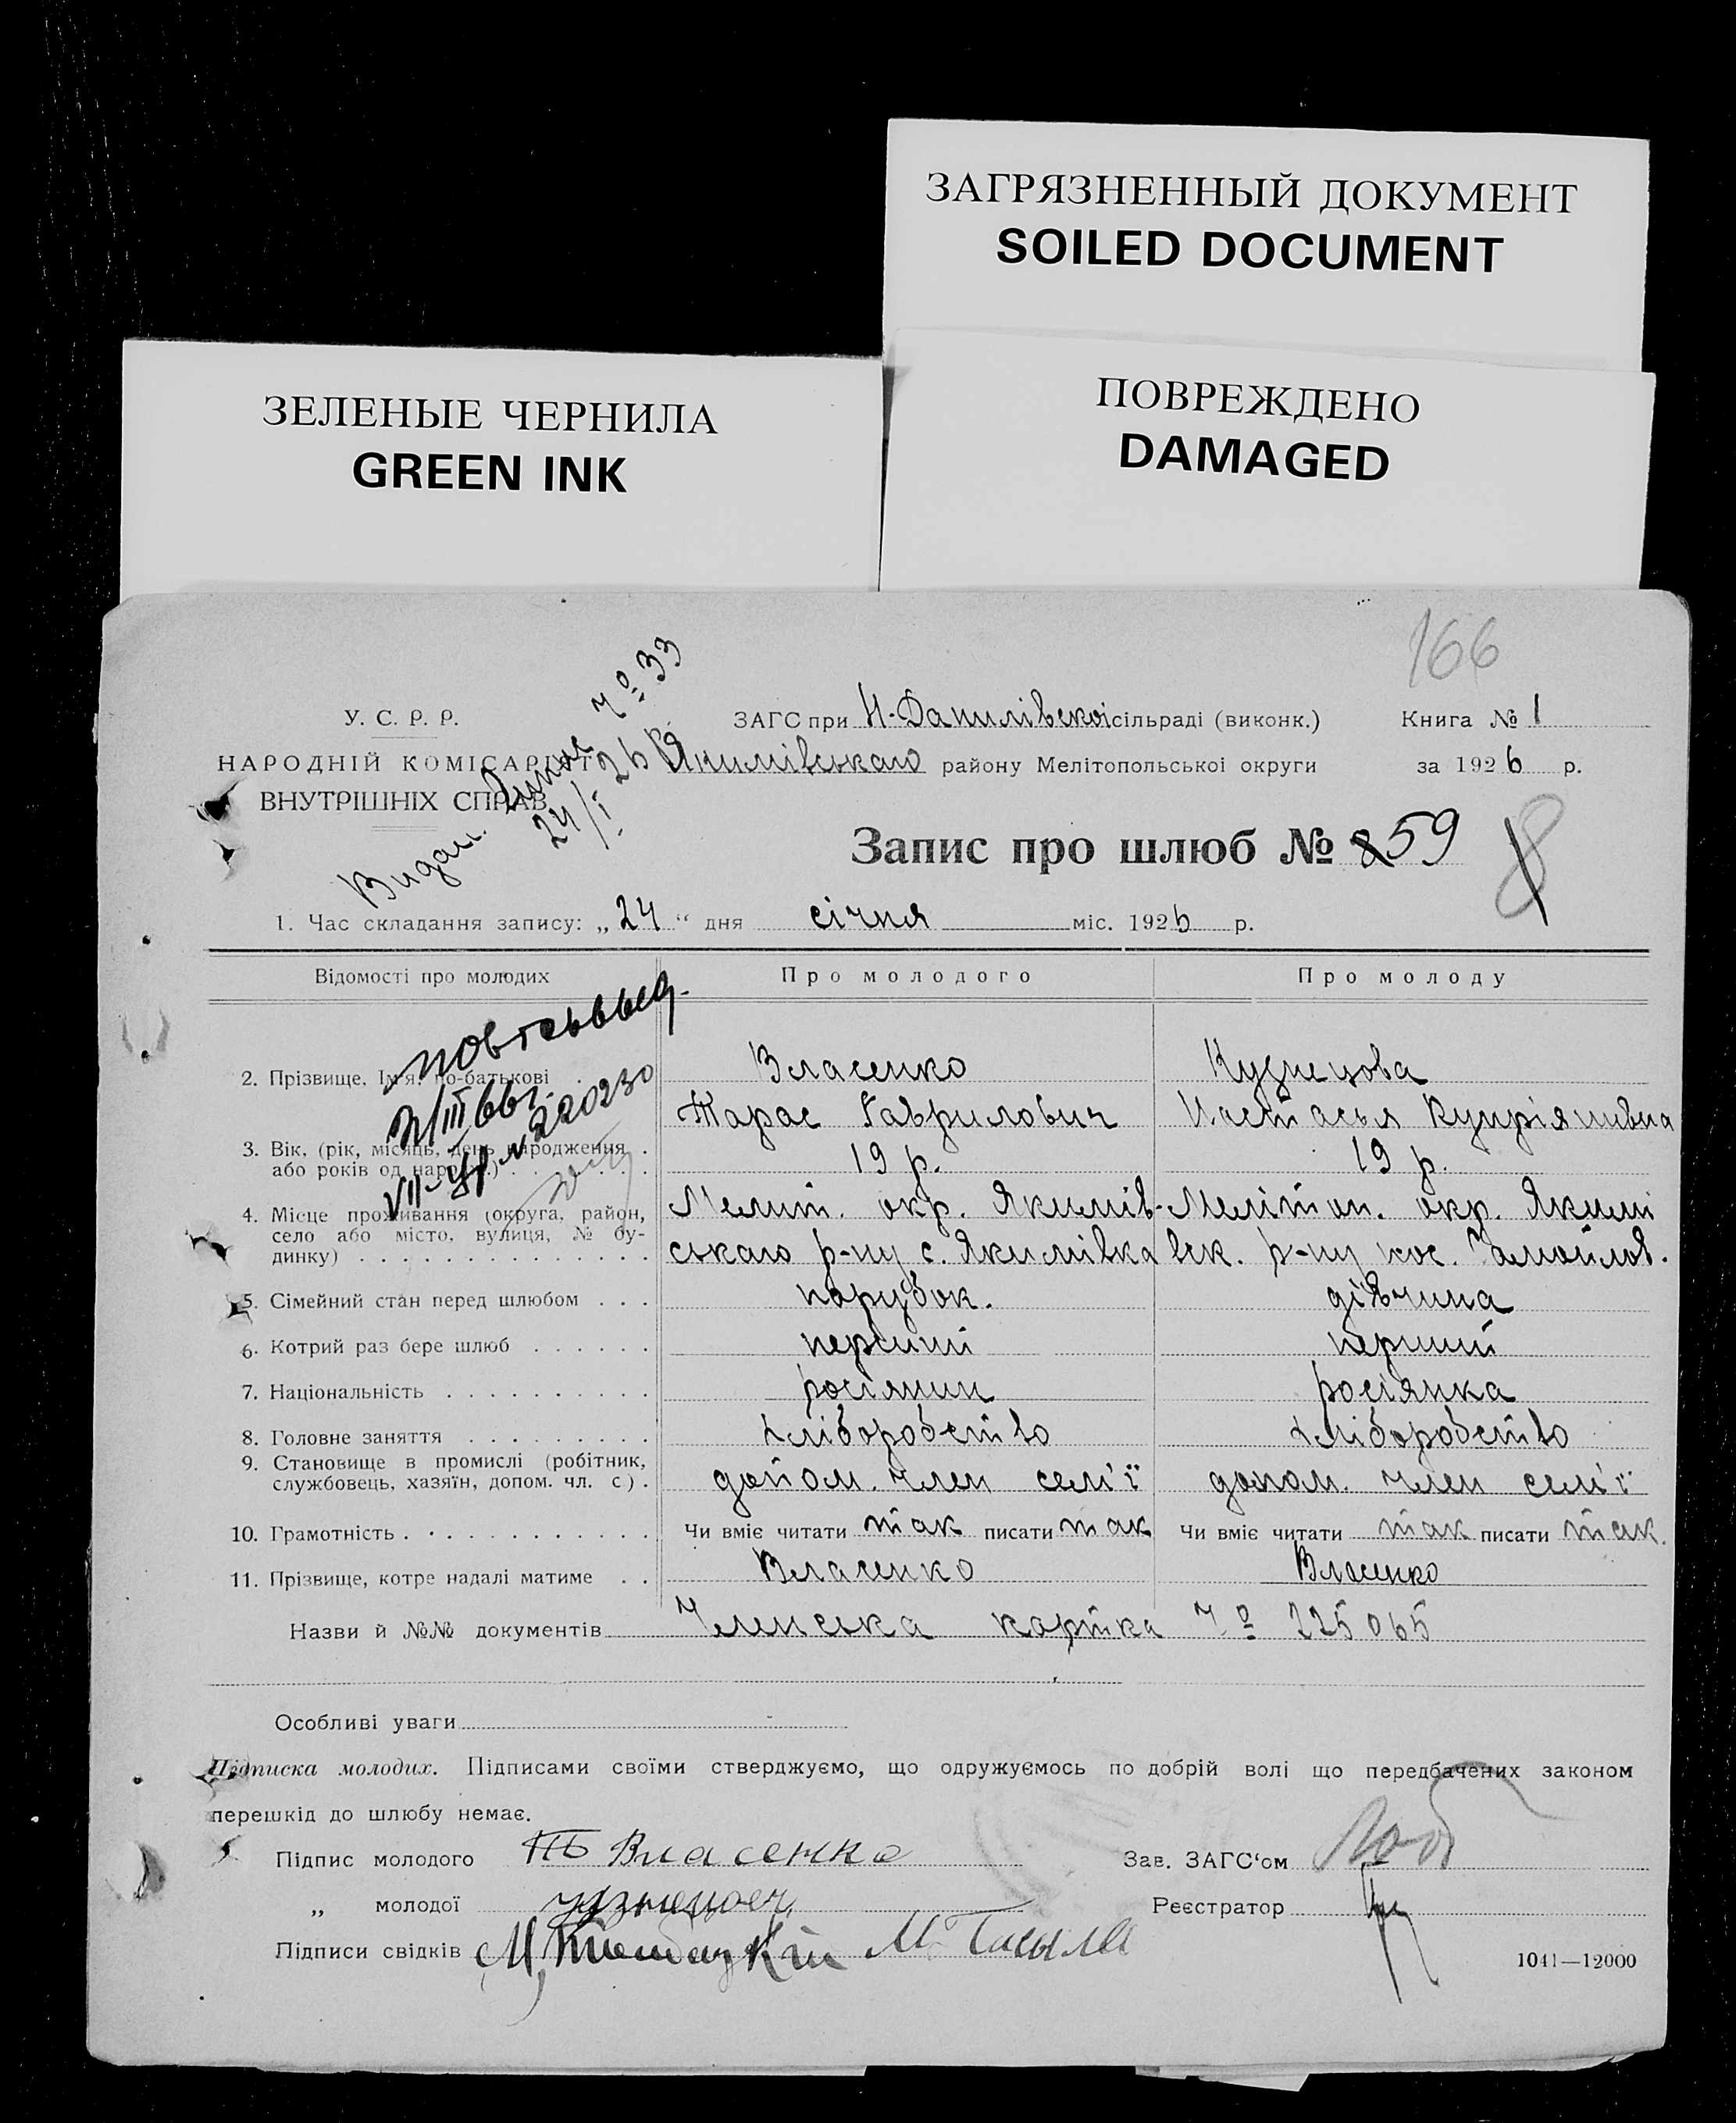 ЗАГРЯЗНЕННЫЙ ДОКУМЕНТ
SOILED DOCUMENT
ЗЕЛЕНЫЕ ЧЕРНИЛА
GREEN INK
ПОВРЕЖДЕНО
DAMAGED
166
У. С. Р. Р.
НАРОДНІЙ КОМІСАРІЯТ
ВНУТРІШНІХ СПРАВ
Видан. № 33
24/I 26 р.
ЗАГС при Н-Данилівскоі сільраді (виконк.) Книга № 1
Якимівського району Мелітопольськоі округи за 1926 р.
Запис про шлюб № 8 59
8
1. Час складання запису: „24“ дня січня міс. 1926 р.
Відомості про молодих Про молодого Про молоду
2. Прізвище, Ім'я, по-батькові Власенко Кузнецова
Тарас Гаврилович Настасья Купріянивна
3. Вік, (рік, місяць, день народження 19 р. 19 р.
або років од народж.)
4. Місце проживання (округа, район, Мелит. окр. Якимів- Мелітоп. окр. Якимі
село або місто, вулиця, № бу-
динку) ського р-ну с. Якимівка вск. р-ну пос.
5. Сімейний стан перед шлюбом парубок. дівчина
6. Котрий раз бере шлюб перший перший
7. Національність росіянин росіянка
8. Головне заняття хліборобство хліборобство
9. Становище в промислі (робітник,
службовець, хазяїн, допом. чл. с). допом. член сем'ї допом. член сем'ї
10. Грамотність Чи вміє читати так писати так Чи вміє читати так писати так.
11. Прізвище, котре надалі матиме Власенко Власенко
Назви й №№ документів Членська картка № 225065
Особливі уваги
Підписка молодих. Підписами своїми стверджуємо, що одружуємось по добрій волі що передбачених законом
перешкід до шлюбу немає.
Підпис молодого Власенко Зав. ЗАГС'ом
„ молодої Реєстратор
Підписи свідків
1041—12000